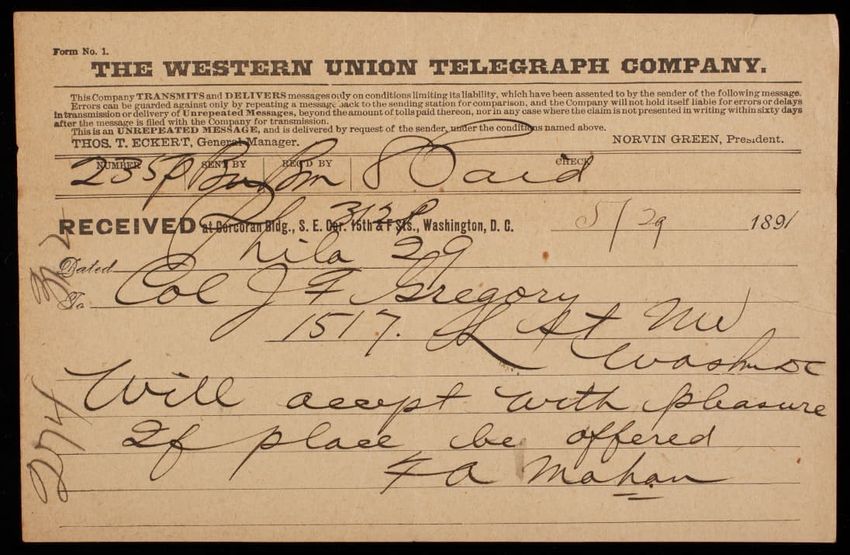 Form No. 1.
THE WESTERN UNION TELEGRAPH COMPANY.
This Company TRANSMITS and DELIVERS messages only on conditions limiting its liability, which have been assented to by the sender of the following message.
Errors can be guarded against only by repeating a message back to the sending station for comparison, and the Company will not hold itself liable for errors or delays
in transmission or delivery of Unrepeated Messages, beyond the amount of tolls paid thereon, nor in any case where the claim is not presented in writing within sixty days
after the message is filed with the Company for transmission.
This is an UNREPEATED MESSAGE, and is delivered by request of the sender, under the conditions named above.
THOS. T. ECKERT, General Manager. NORVIN GREEN, President.
NUMBER SENT BY REC'D BY CHECK
235p 8 Paid
RECEIVED at Corcoran Bldg., S. E. Cor. 15th & F Sts., Washington, D. C. 5/29 1891
312p
Dated Phila 29
To Col J F Gregory
1517. L St NW
Wash DC
Will accept with pleasure
If place be offered
F A Mahan
312
274